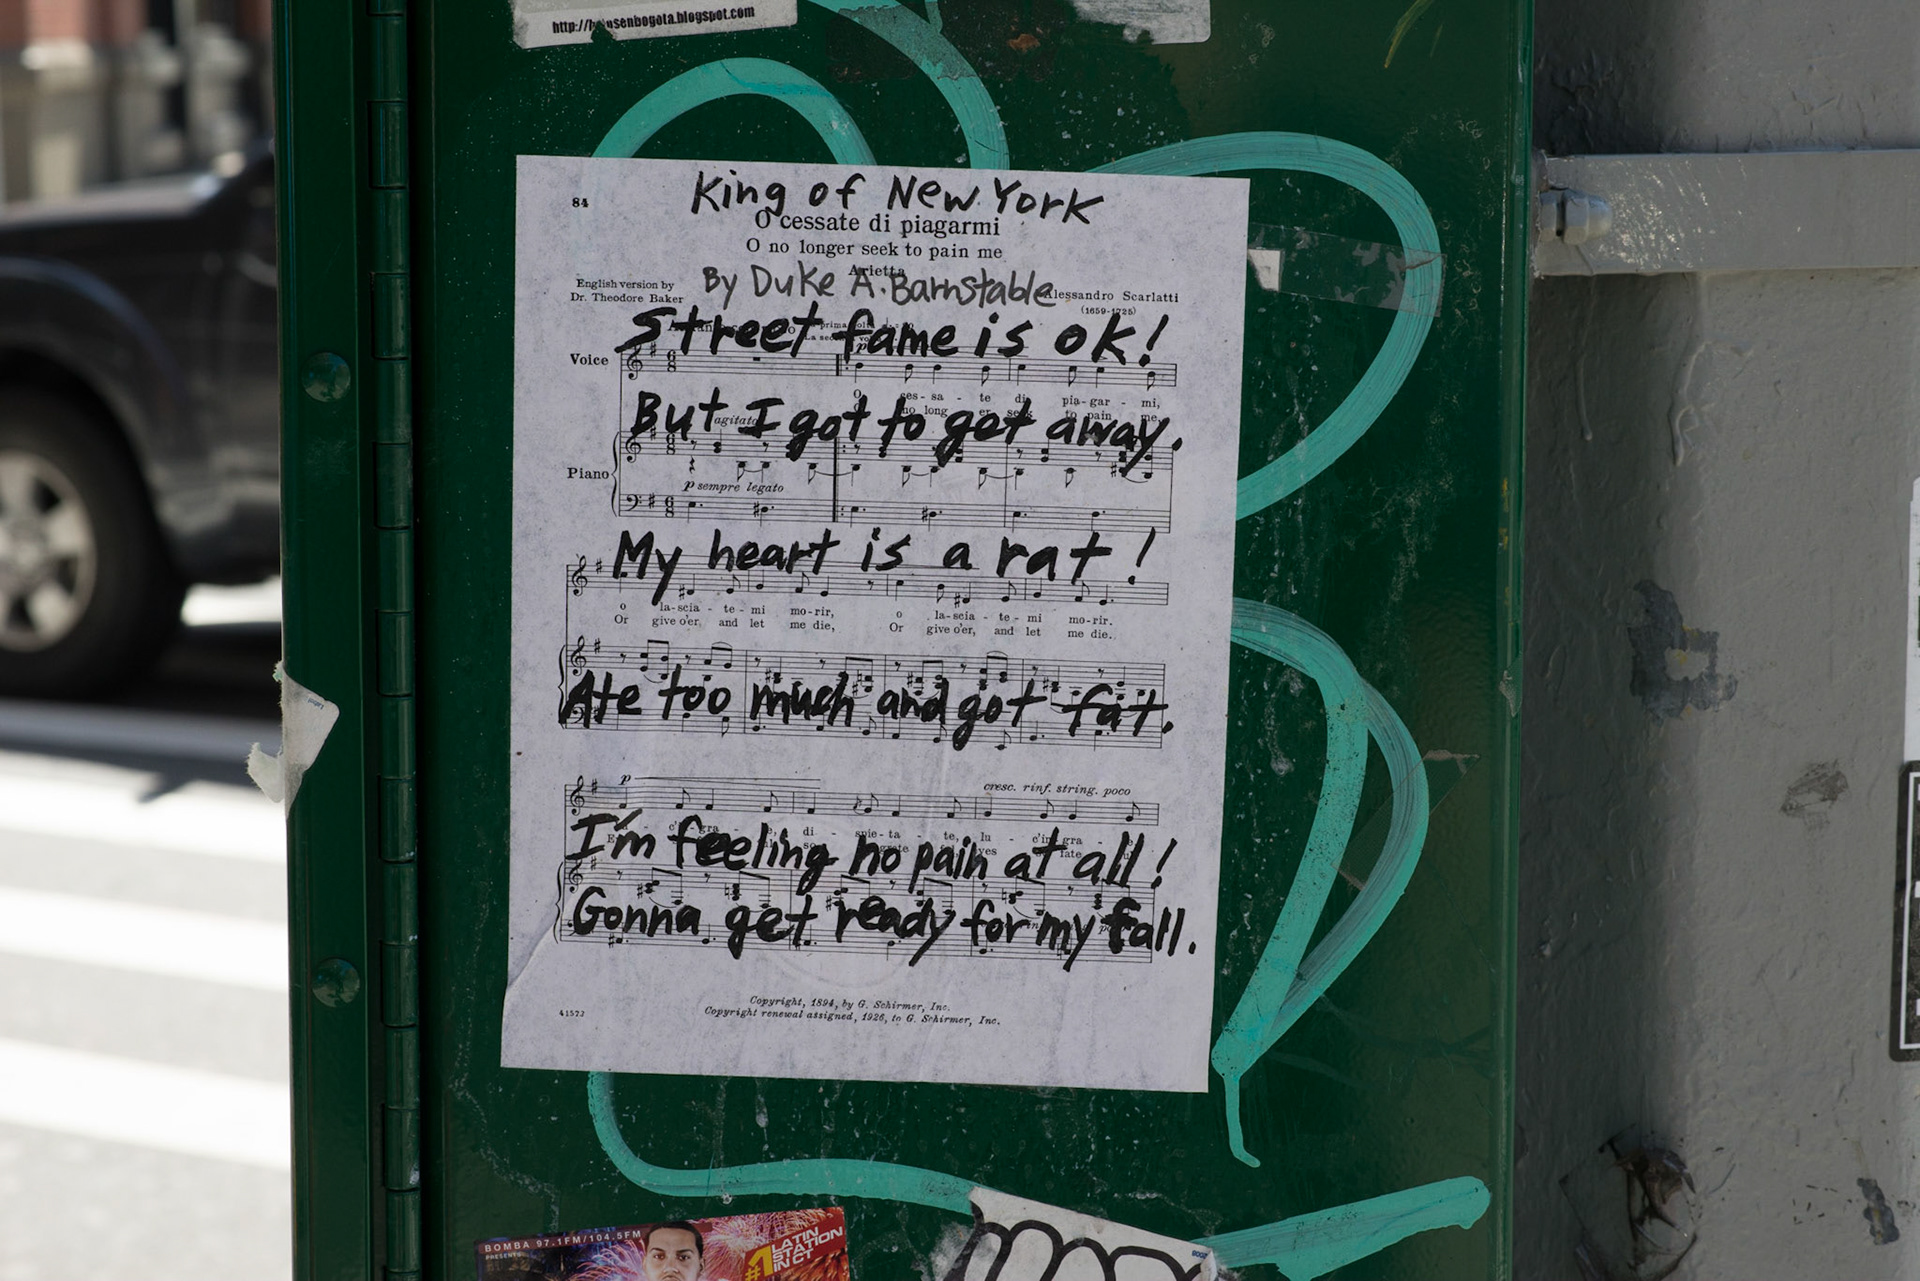 King of New York
84
O cessate di piagarmi
O no longer seek to pain me
Arietta
By Duke A. Barnstable
English version by
Dr. Theodore Baker
Alessandro Scarlatti
(1659-1725)
Street fame is ok!
Voice
te di pia - gar - mi,
long er to pain me
But I got to get away.
agitato
Piano
p sempre legato
My heart is a rat!
o la-scia - te - mi mo-rir, o la-scia - te - mi mo-rir.
Or give o'er, and let me die, Or give o'er, and let me die.
Ate too much and got fat.
p
cresc. rinf. string. poco
di - spie-ta - te,
I'm feeling no pain at all!
Gonna get ready for my fall.
Copyright, 1894, by G. Schirmer, Inc.
41572
Copyright renewal assigned, 1926, to G. Schirmer, Inc.
BOMBA 97.1FM/104.5FM
PRESENTS
#1 LATIN
STATION
IN CT